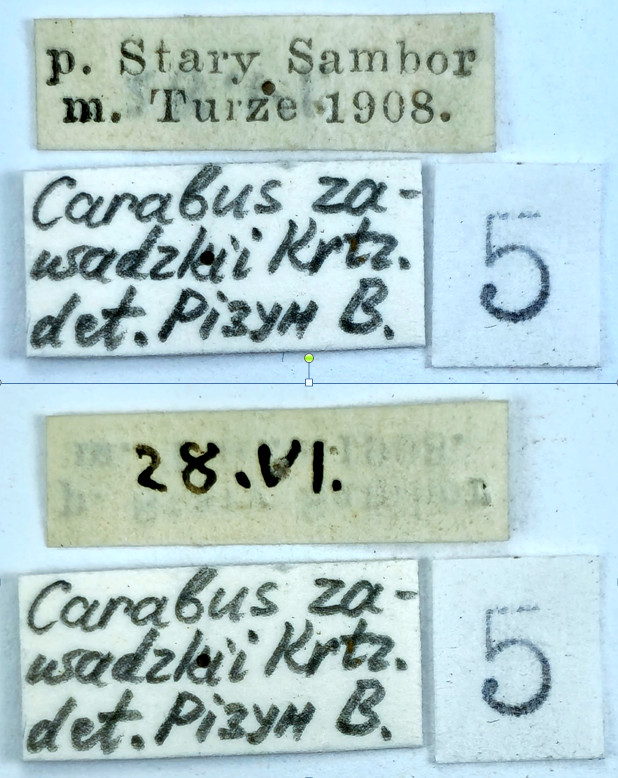 p. Stary Sambor
m. Turze 1908.
Carabus za-
wadzkii Krtz.
det. Різун В.
5
28.VI.
Carabus za-
wadzkii Krtz.
det. Різун В.
5